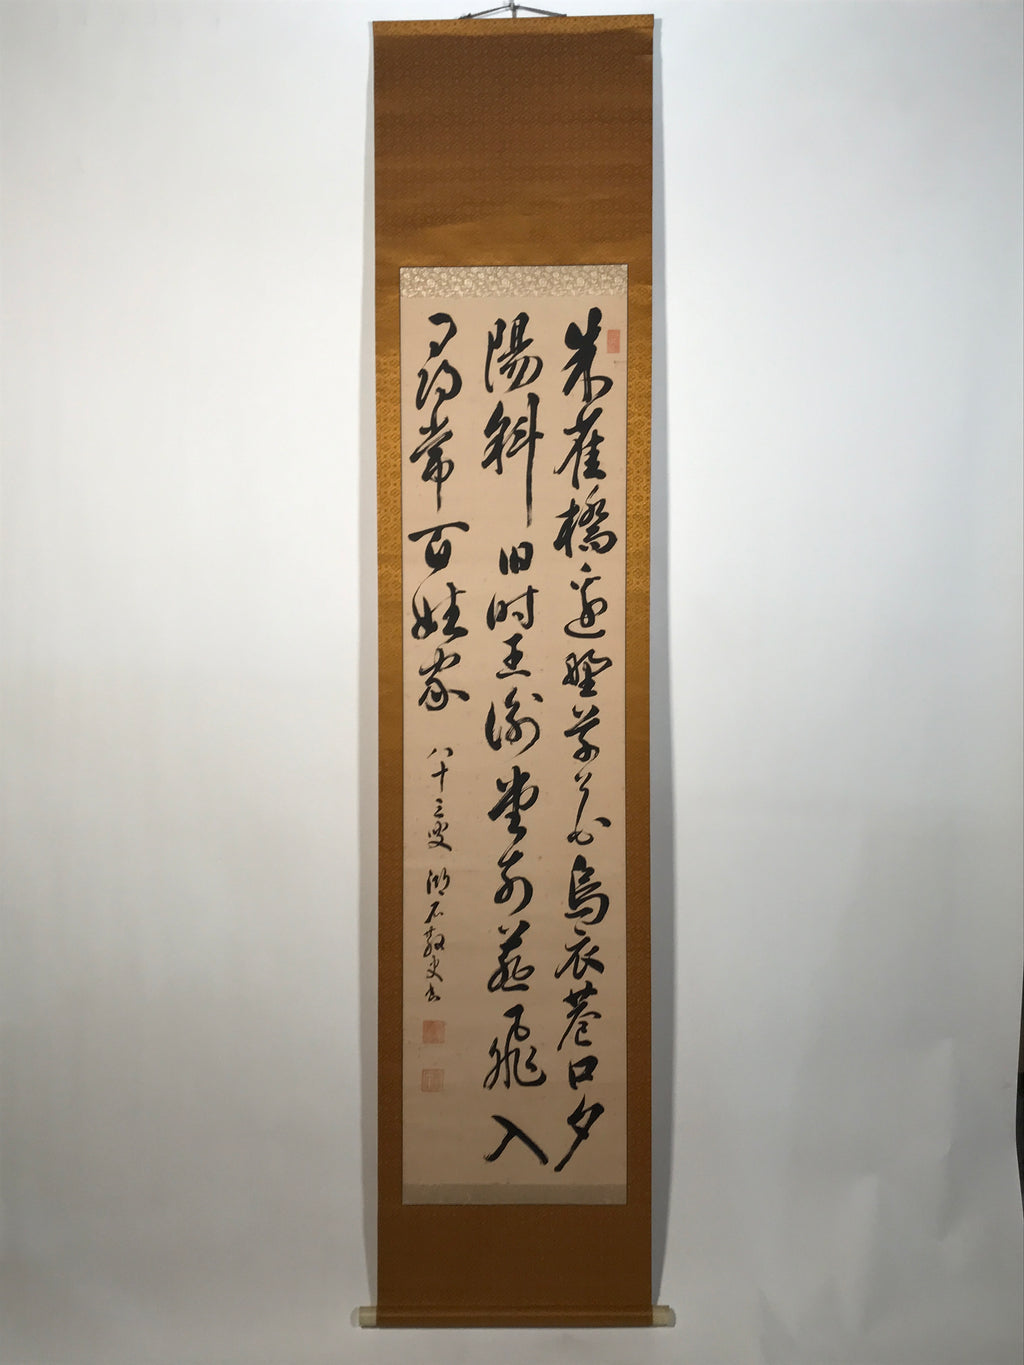 朱雀橋邊野草花烏衣巷口夕
陽斜旧时王謝堂前燕飛入
尋常百姓家
八十三叟湖石散史書